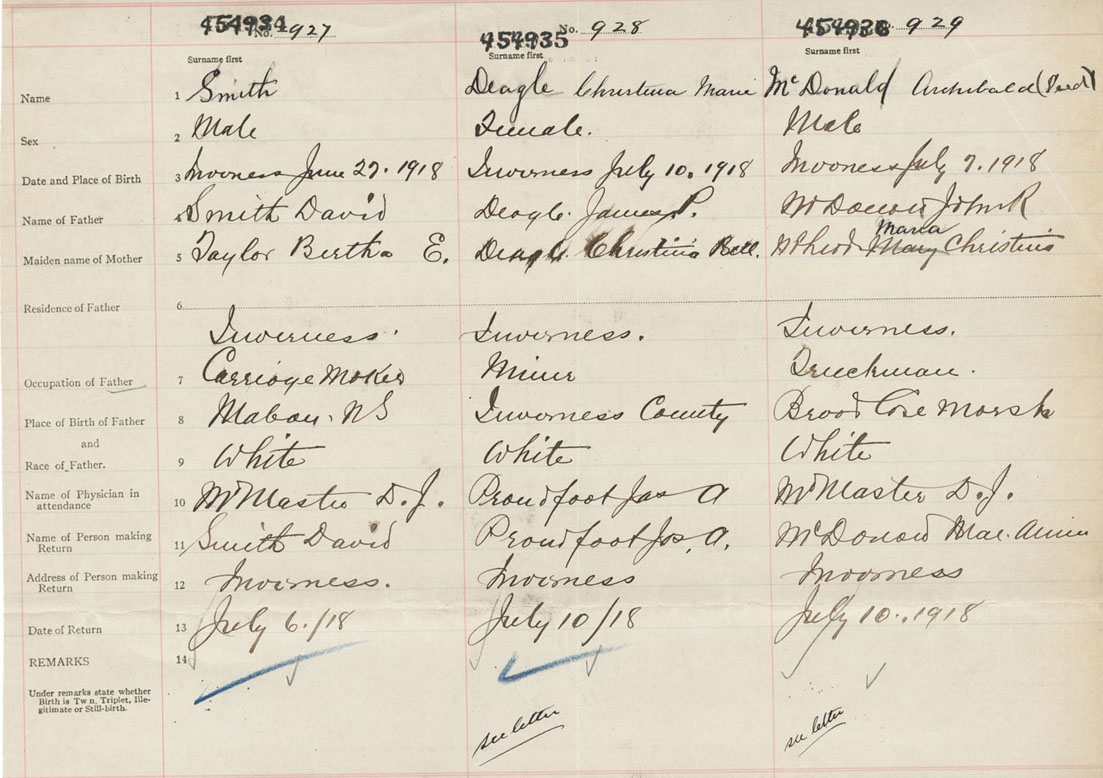 454934 No. 927 454935 No. 928 454936 929
Surname first Surname first Surname first
Name 1 Smith Deagle Christina Marie McDonald Archibald
Sex 2 Male Female. Male
Date and Place of Birth 3 Inverness June 27. 1918 Inverness July 10. 1918 Inverness July 7. 1918
Name of Father 4 Smith David Deagle James P. McDonald John R
Maria
Maiden name of Mother 5 Taylor Bertha E. Deagle Christina Bell. Mary Christina
Residence of Father 6
Inverness Inverness. Inverness.
Occupation of Father 7 Carriage Maker Miner Truckman.
Place of Birth of Father 8 Mabou. NS Inverness County Broad Cove Marsh
and
Race of Father. 9 White White White
Name of Physician in
attendance 10 McMaster D. J. Proudfoot Jas A McMaster D. J.
Name of Person making
Return 11 Smith David Proudfoot Jas. A. McDonald
Address of Person making
Return 12 Inverness. Inverness Inverness
Date of Return 13 July 6./18 July 10/18 July 10.. 1918
REMARKS 14
Under remarks state whether
Birth is Twin, Triplet, Ille-
gitimate or Still-birth.
see letter see letter